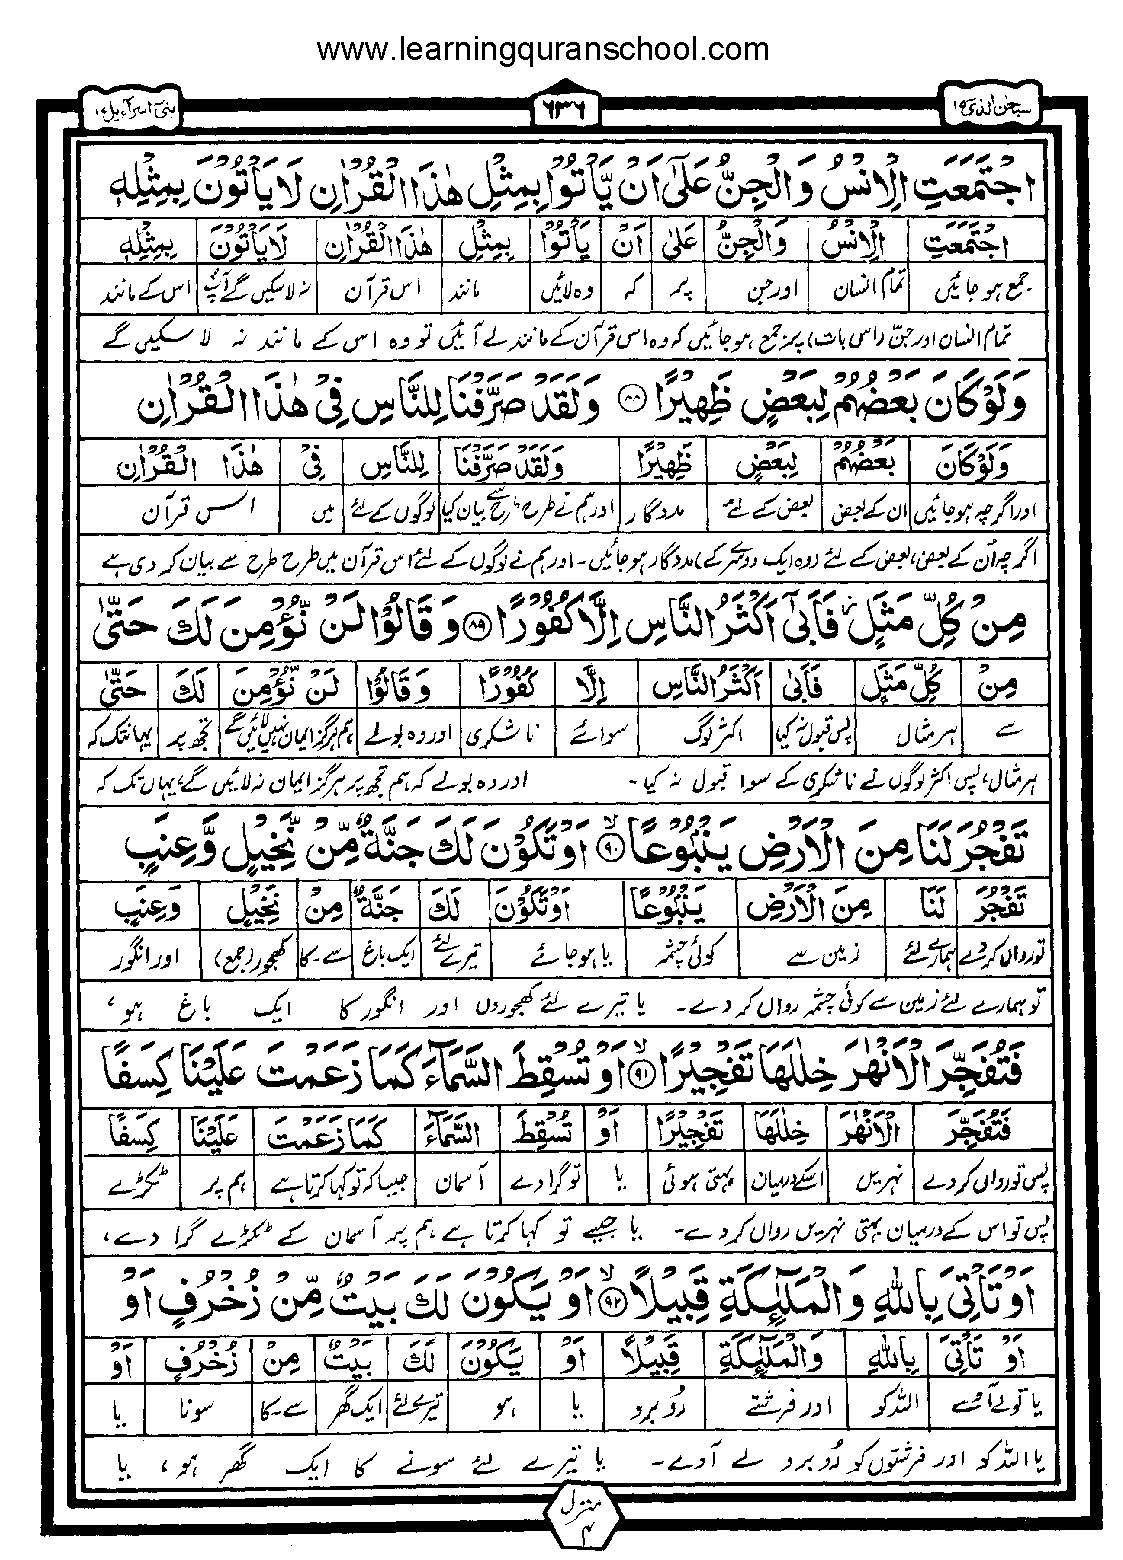 www.learningquranschool.com
سبحٰن الذی ۱۵ ٦٣٦ بنیٓ اسرآءیل ۱۷
اجْتَمَعَتِ الْاِنْسُ وَالْجِنُّ عَلٰۤى اَنْ يَّاْتُوْا بِمِثْلِ هٰذَا الْقُرْاٰنِ لَا يَاْتُوْنَ بِمِثْلِهٖ
اجْتَمَعَتِ الْاِنْسُ وَالْجِنُّ عَلٰى اَنْ يَاْتُوْا بِمِثْلِ هٰذَا الْقُرْاٰنِ لَا يَاْتُوْنَ بِمِثْلِهٖ
جمع ہو جائیں تمام انسان اور جن پر کہ وہ لائیں مانند اس قرآن نہ لا سکیں گے اس کے مانند
تمام انسان اور جن (اس بات) پر جمع ہو جائیں کہ وہ اس قرآن کے مانند لے آئیں تو وہ اس کے مانند نہ لا سکیں گے
وَلَوْ كَانَ بَعْضُهُمْ لِبَعْضٍ ظَهِيْرًا ۸۸ وَلَقَدْ صَرَّفْنَا لِلنَّاسِ فِيْ هٰذَا الْقُرْاٰنِ
وَلَوْ كَانَ بَعْضُهُمْ لِبَعْضٍ ظَهِيْرًا وَلَقَدْ صَرَّفْنَا لِلنَّاسِ فِيْ هٰذَا الْقُرْاٰنِ
اور اگرچہ ہو جائیں ان کے بعض بعض کے لئے مددگار اور ہم نے طرح طرح سے بیان کیا لوگوں کے لئے میں اس قرآن
اگرچہ ان کے بعض، بعض کے لئے (وہ ایک دوسرے کے) مددگار ہو جائیں۔ اور ہم نے لوگوں کے لئے اس قرآن میں طرح طرح سے بیان کر دی ہے
مِنْ كُلِّ مَثَلٍ فَاَبٰۤى اَكْثَرُ النَّاسِ اِلَّا كُفُوْرًا ۸۹ وَقَالُوْا لَنْ نُّؤْمِنَ لَكَ حَتّٰى
مِنْ كُلِّ مَثَلٍ فَاَبٰى اَكْثَرُ النَّاسِ اِلَّا كُفُوْرًا وَقَالُوْا لَنْ نُّؤْمِنَ لَكَ حَتّٰى
سے ہر مثال پس قبول نہ کیا اکثر لوگ سوائے ناشکری اور وہ بولے ہم ہرگز ایمان نہیں لائیں گے تجھ پر یہانتک کہ
ہر مثال، پس اکثر لوگوں نے ناشکری کے سوا قبول نہ کیا۔ اور وہ بولے کہ ہم تجھ پر ہرگز ایمان نہ لائیں گے، یہاں تک کہ
تَفْجُرَ لَنَا مِنَ الْاَرْضِ يَنْۢبُوْعًا ۹۰ اَوْ تَكُوْنَ لَكَ جَنَّةٌ مِّنْ نَّخِيْلٍ وَّعِنَبٍ
تَفْجُرَ لَنَا مِنَ الْاَرْضِ يَنْۢبُوْعًا اَوْ تَكُوْنَ لَكَ جَنَّةٌ مِنْ نَخِيْلٍ وَعِنَبٍ
تو رواں کر دے ہمارے لئے زمین سے کوئی چشمہ یا ہو جائے تیرے لئے ایک باغ سے۔کا کھجور (جمع) اور انگور
تو ہمارے لئے زمین سے کوئی چشمہ رواں کر دے۔ یا تیرے لئے کھجوروں اور انگور کا ایک باغ ہو،
فَتُفَجِّرَ الْاَنْهٰرَ خِلٰلَهَا تَفْجِيْرًا ۹۱ اَوْ تُسْقِطَ السَّمَآءَ كَمَا زَعَمْتَ عَلَيْنَا كِسَفًا
فَتُفَجِّرَ الْاَنْهٰرَ خِلٰلَهَا تَفْجِيْرًا اَوْ تُسْقِطَ السَّمَآءَ كَمَا زَعَمْتَ عَلَيْنَا كِسَفًا
پس تو رواں کر دے نہریں اسکے درمیان بہتی ہوئی یا تو گرا دے آسمان جیسا کہ تو کہا کرتا ہے ہم پر ٹکڑے
پس تو اس کے درمیان بہتی نہریں رواں کر دے۔ یا جیسے تو کہا کرتا ہے ہم پر آسمان کے ٹکڑے گرا دے،
اَوْ تَاْتِيَ بِاللّٰهِ وَالْمَلٰٓئِكَةِ قَبِيْلًا ۹۲ اَوْ يَكُوْنَ لَكَ بَيْتٌ مِّنْ زُخْرُفٍ اَوْ
اَوْ تَاْتِيَ بِاللّٰهِ وَالْمَلٰٓئِكَةِ قَبِيْلًا اَوْ يَكُوْنَ لَكَ بَيْتٌ مِنْ زُخْرُفٍ اَوْ
یا تو لے آئے اللہ کو اور فرشتے رُوبرو یا ہو تیرے لئے ایک گھر سے۔کا سونا یا
یا اللہ کو اور فرشتوں کو رُوبرو لے آوے۔ یا تیرے لئے سونے کا ایک گھر ہو، یا
منزل ۴